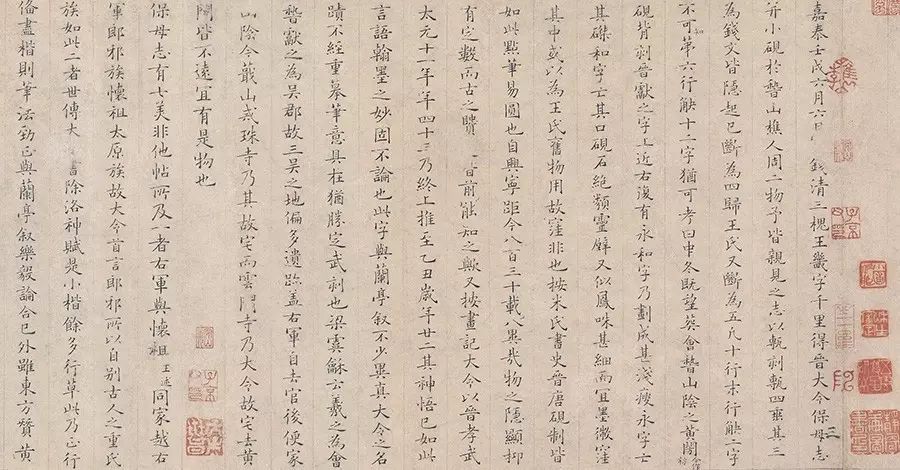 嘉泰壬戌六月六日錢清三槐王畿字千里得晉大令保母志
并小硯於稽山樵人周二物予皆親見之志以甎刻甎四垂其三
為錢文皆隱起已斷為四歸王氏又斷為五凡十行末行缺二字
不可知第六行缺十二字猶可考曰中冬既望葬會稽山陰之黃閍
硯背刻晉獻之字上近右復有永和字乃劃成甚淺瘦永字亡
其磔和字亡其口硯石絕類靈壁又似鳳咮甚細而宜墨微窪
其中或以為王氏舊物用故窪非也按米氏書史晉唐硯制皆
如此點筆易圓也自興寧距今八百三十載八異哉物之隱顯抑
有定數而古之賢 皆前能知之歟又按畫記大令以晉孝武
太元十一年年四十三乃終上推至乙丑歲年廿二其神悟已如此
言語翰墨之妙固不論也此字與蘭亭敘不少異真大令之名
蹟不經重摹筆意具在猶勝定武刻也梁虞龢云羲之為會
稽獻之為吳郡故三吳之地偏多遺跡蓋右軍自去官後便家
山陰今蕺山戒珠寺乃其故宅而雲門寺乃大令故宅去黃
閍皆不遠宜有是物也
保母志有七美非他帖所及一者右軍與懷祖王述同家越右
軍郎邪族懷祖太原族故大令首言郎邪所以自別古人之重氏
族如此二者世傳大 書除洛神賦是小楷餘多行草此乃正行
俻盡楷則筆法勁正與蘭亭敘樂毅論合已外雖東方贊黃